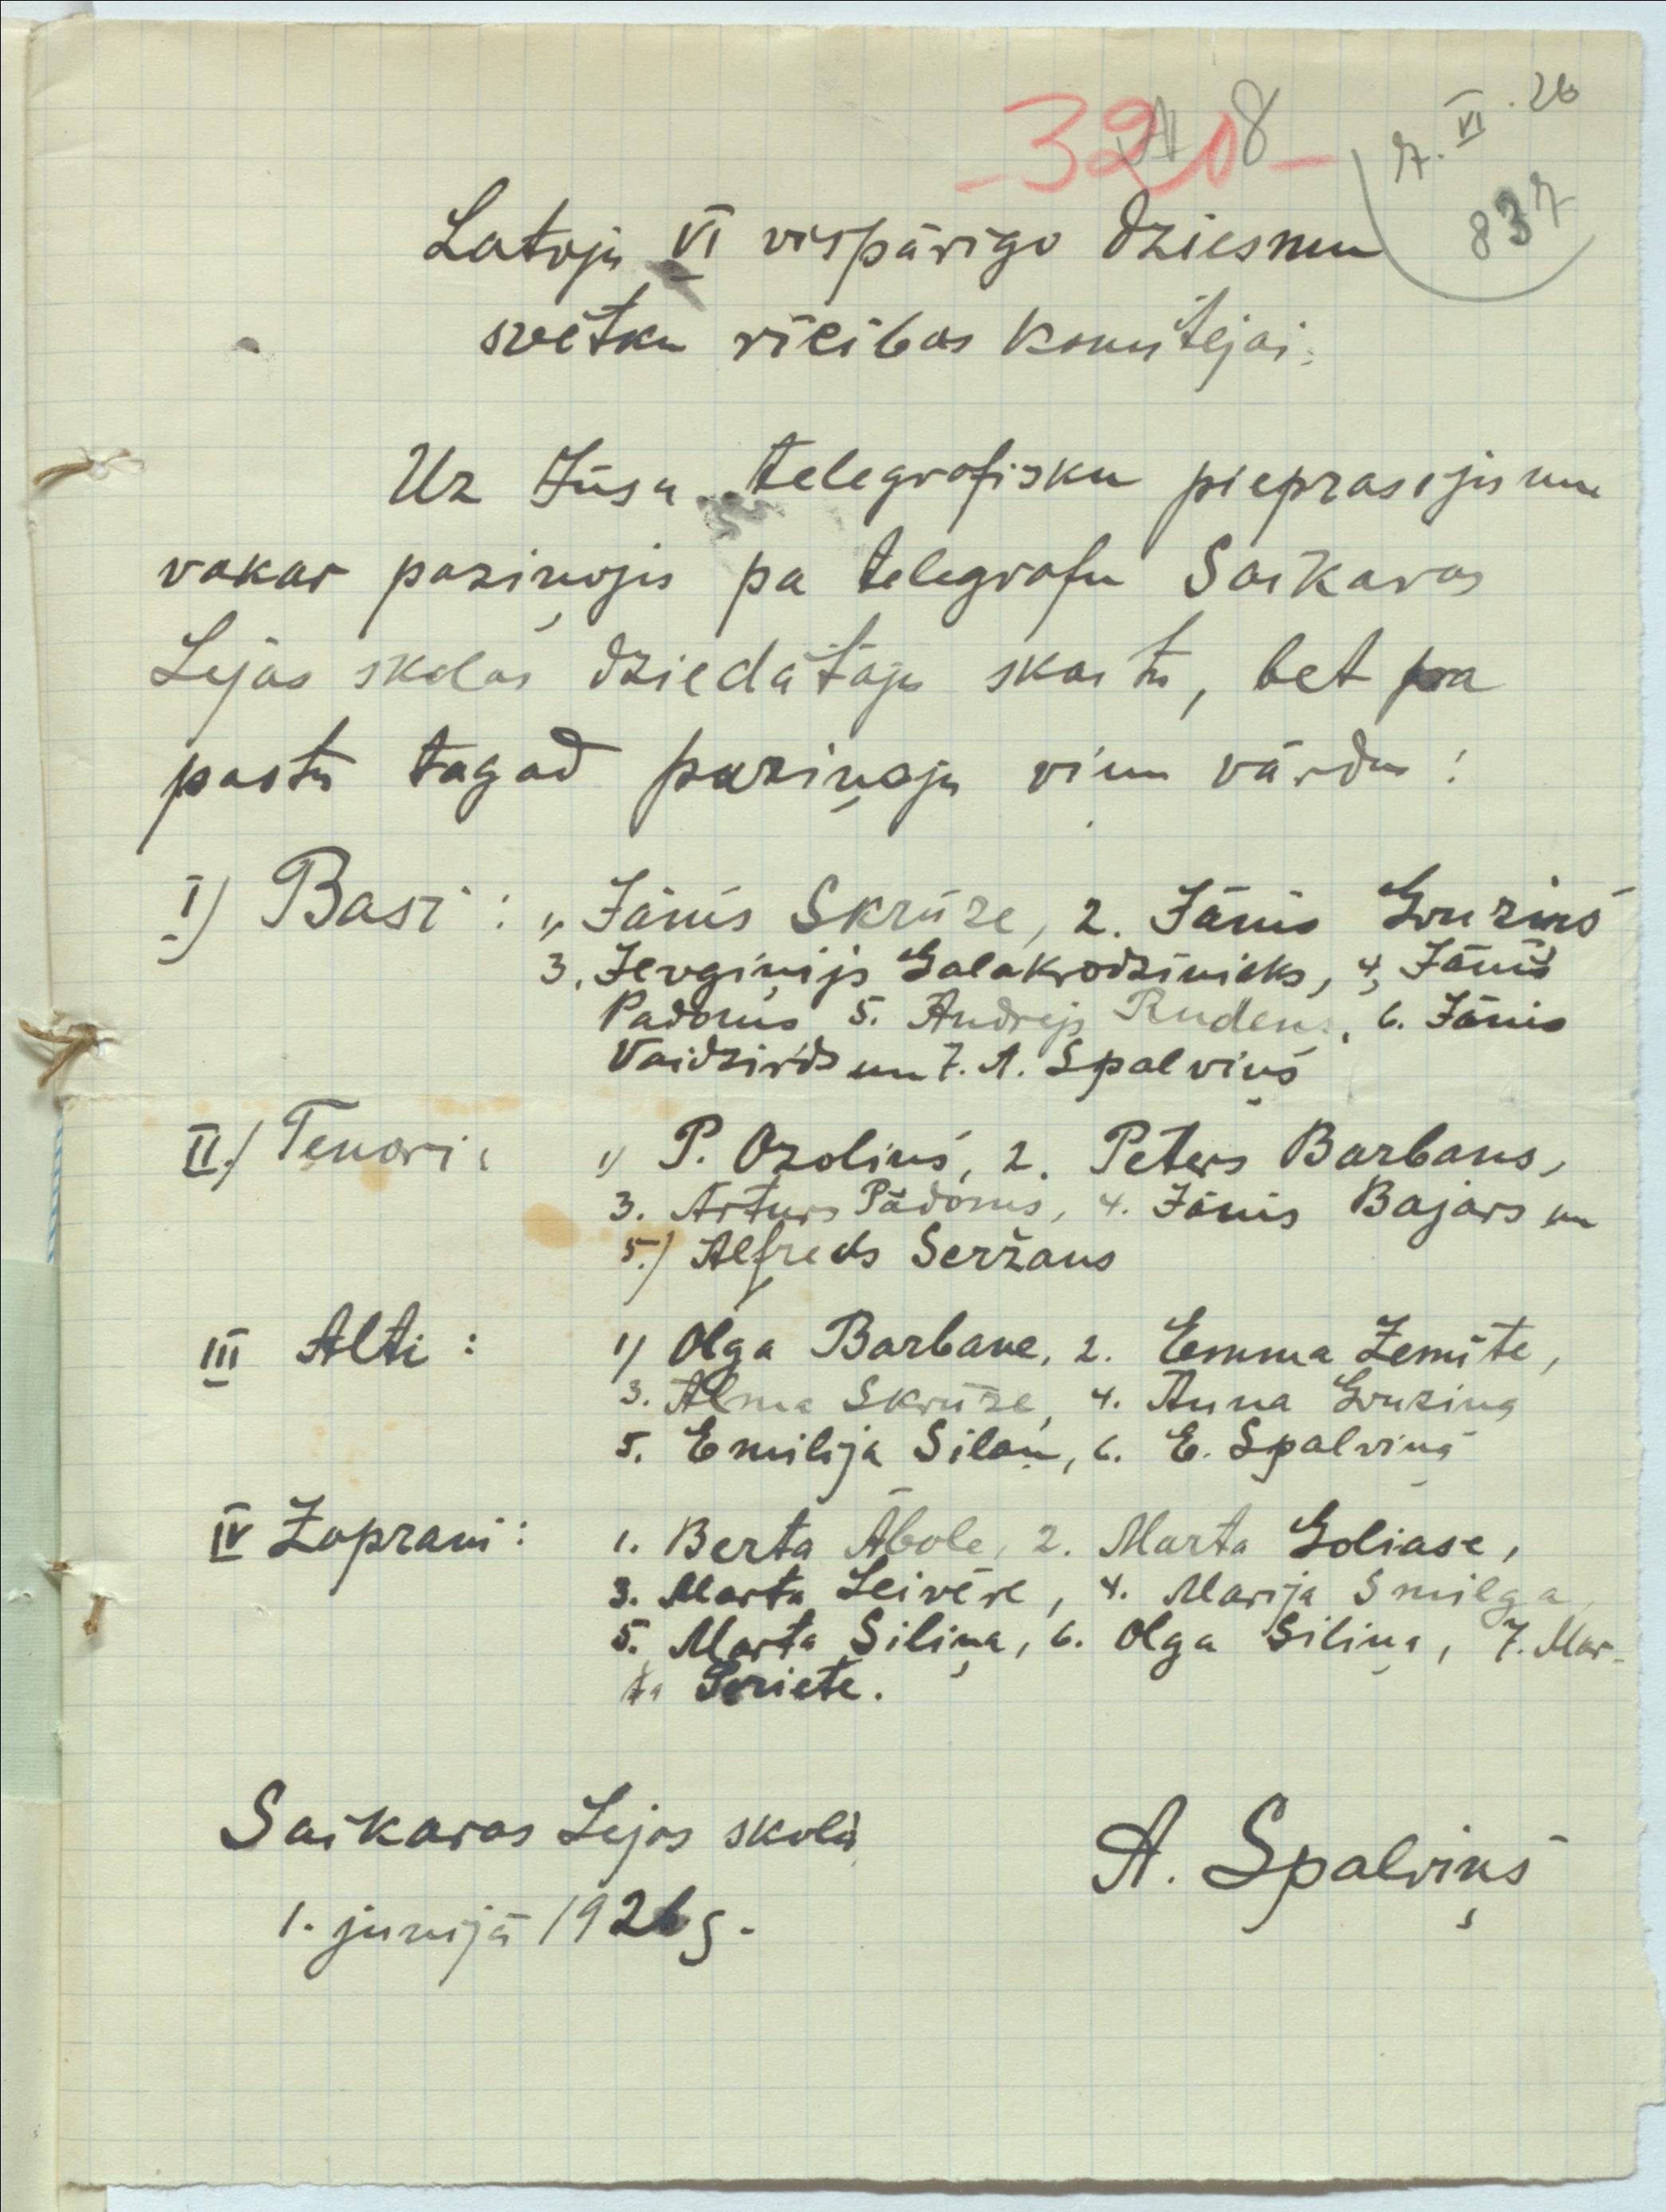 7. VI. 26
837
Latvju VI vispārīgo dziesmu
svētku rīcības komitejai.
Uz Jūsu telegrafisku pieprasījumu
vakar paziņoju pa telegrafu Saikavas
Lejas skolas dziedātāju skaitu, bet pa
pastu tagad paziņoju viņu vārdus:
I) Basi: 1, Jānis Skrūze, 2. Jānis Gruziņš
3, Jevgiņijs Galakrodzinieks, 4, Jānis
Padoms, 5. Andrejs Rudens, 6. Jānis
Vaidzirds un 7. A. Spalviņš
II) Tenori: 1) P. Ozoliņš, 2. Pēters Barbans,
3. Arturs Pādoms, 4. Jānis Bajars un
5.) Alfreds Seržans
III Alti: 1) Olga Barbane, 2. Emma Zemīte,
3. Alma Skrūze, 4. Anna Gruziņa
5. Emilija 6. E. Spalviņa
IV Zoprani: 1. Berta Ābole, 2. Marta Goliase,
3. Marta Leivēre, 4. Marija Smilga,
5. Marta Siliņa, 6. Olga Siliņa, 7. Mar-
ta
Saikavas Lejas skolā
1. junijā 1926 g. A. Spalviņš